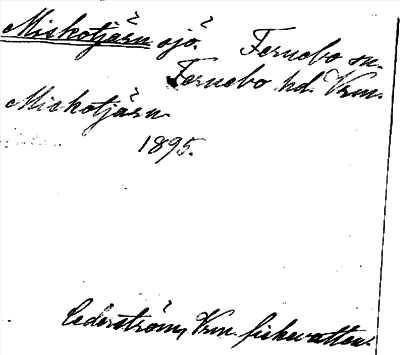 Miskotjärn sjö. Fernebo sn.
Fernebo hd. Vrm.
Miskotjärn
1895.
Cederström, Vrm. fiskevatten.